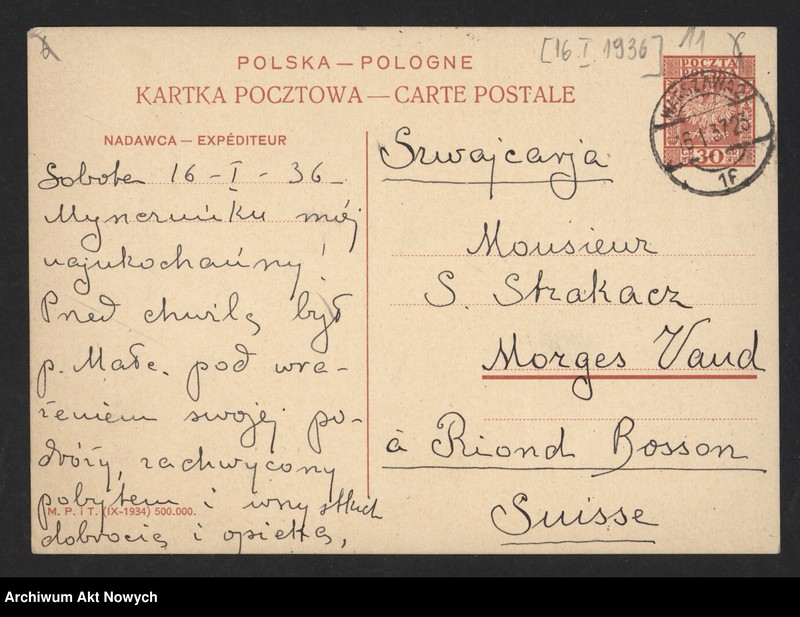 [16 I 1936] 11
POLSKA — POLOGNE
KARTKA POCZTOWA — CARTE POSTALE
POCZTA
30
WARSZAWA
1F
NADAWCA — EXPÉDITEUR
Sobota 16 - I - 36 -
mój
najukochańszy!
Przed chwilą był
p. Małc. pod wra-
żeniem swojej po-
dróży, zachwycony
pobytem i wszystkich
dobrocią i opieką,
M. P. i T. (IX-1934) 500.000.
Szwajcarja
Monsieur
S. Strakacz
Morges Vaud
à Riond Bosson
Suisse
Archiwum Akt Nowych